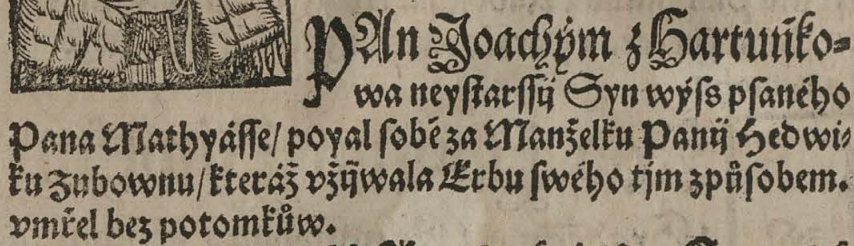 PAn Joachým z Hartuňko-
wa neystarssij Syn wýss psaného
Pana Mathyásse/ poyal sobě za Manželku Panij Hedwi-
ku Zubownu/ kteráž vžijwala Erbu swého tjm způsobem.
vmřel bez potomkůw.